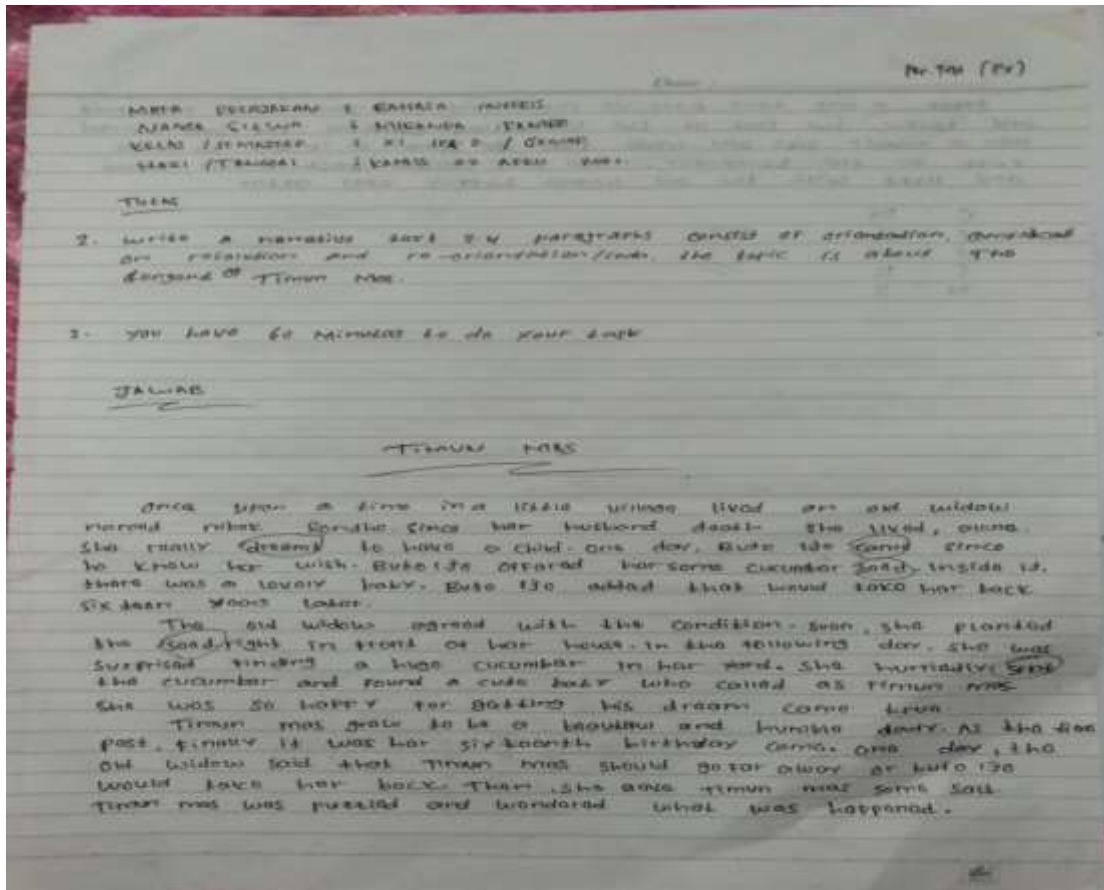 MATA PELAJARAN : BAHASA INGGRIS
NAMA SISWA :
KELAS / SEMESTER : XI IPA 2 /
HARI / TANGGAL : KAMIS
2. write a narrative text paragraphs consist of orientation,
and re-orientation/coda. the topic is about The
of Timun Mas.
3. you have 60 minutes to do your task
JAWAB
TIMUN MAS
Once upon a time in a little village lived an old widow
named Rondho. Since her husband death she lived, alone.
She really dreamt to have a child. One day, Buto Ijo came since
he know her wish. Buto Ijo offered her some cucumber seed. Inside it,
there was a lovely baby. Buto Ijo added that would take her back
sixteen years later.
The old widow agreed with the condition. Soon, she planted
the seed right in front of her house. In the following day, she was
surprised finding a huge cucumber in her yard. She
the cucumber and found a cute baby who called as Timun mas
She was so happy for getting his dream came true.
Timun mas grew to be a and humble As the time
past, finally it was her sixteenth birthday came. One day, the
old widow said that Timun mas should go far away or buto ijo
would take her back. Then, she gave Timun mas some salt
Timun mas was puzzled and wondered what was happened.